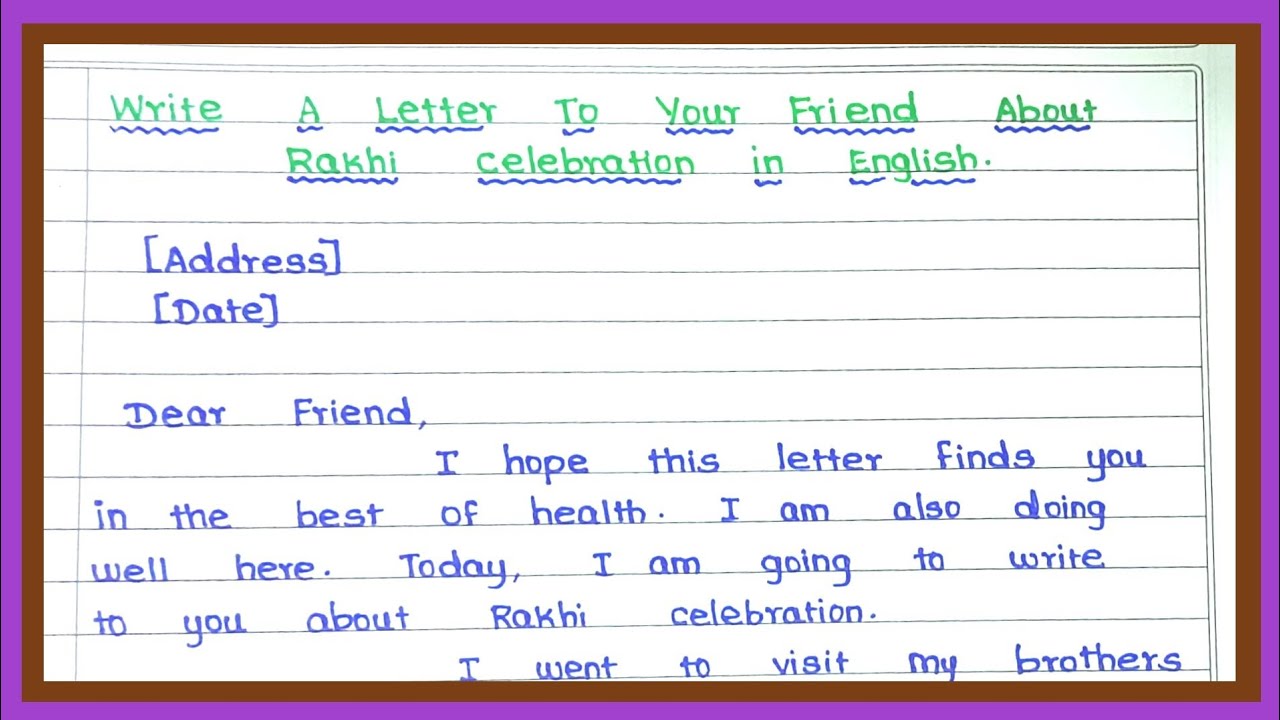 Write A Letter To Your Friend About
Rakhi celebration in English.
[Address]
[Date]
Dear Friend,
I hope this letter finds you
in the best of health. I am also doing
well here. Today, I am going to write
to you about Rakhi celebration.
I went to visit my brothers